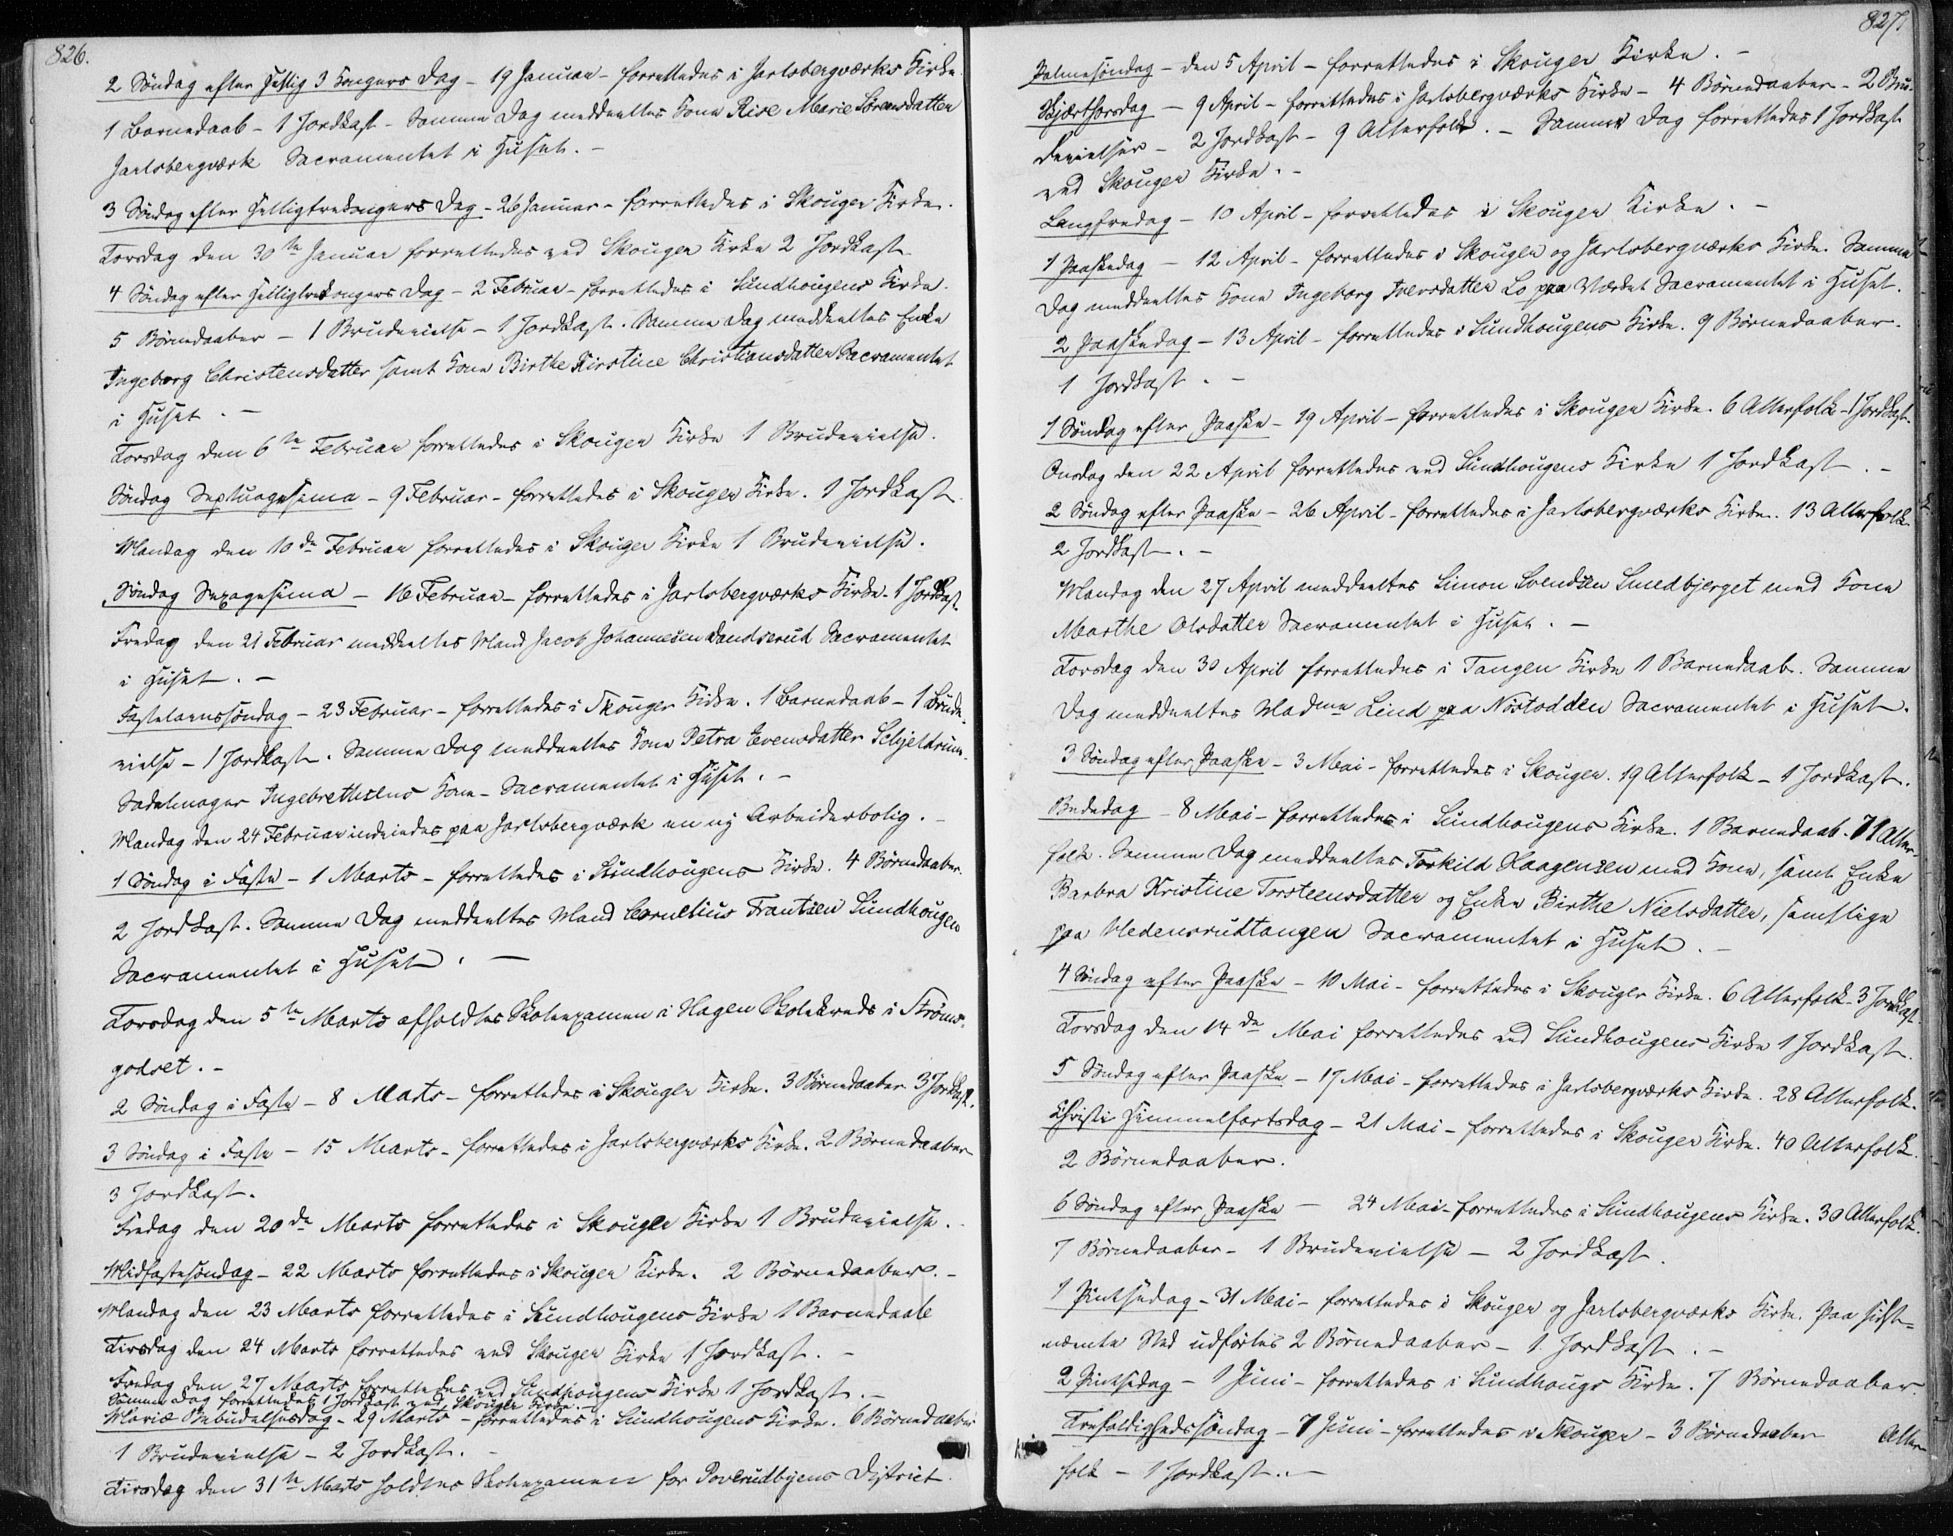 826.
2 Söndag efter Hellig 3 Kongers Dag - 19 Januar - forrettedes i Jarlsbergværks Kirke.
1 Barnedaab - 1 Jordkast - Samme Dag meddeeltes Kone Rise Marie Sörensdatter
Jarlsbergværk Sacramentet i Huset. -
3 Söndag efter Helligtrekongers Dag - 26 Januar - forrettedes i Skouger Kirke.
Torsdag den 30te Januar forrettedes ved Skouger Kirke 2 Jordkast
4 Söndag efter Helligtrekongers Dag - 2 Februar - forrettedes i Sundhougens Kirke.
5 Börnedaaber - 1 Brudevielse - 1 Jordkast. Samme Dag meddeeltes Enke
Ingeborg Christensdatter samt Kone Birthe Kirstine Christiansdatter Sacramentet
i Huset. -
Torsdag den 6te Februar forrettedes i Skouger Kirke 1 Brudevielse.
Söndag Septuagesima - 9 Februar - forrettedes i Skouger Kirke. 1 Jordkast
Mandag den 10de Februar forrettedes i Skouger Kirke 1 Brudevielse.
Söndag Sexagesima - 16 Februar - forrettedes i Jarlsbergværks Kirke - 1 Jordkast
Fredag den 21 Februar meddeeltes Mand Jacob Johannesen Landserud Sacramentet
i Huset. -
Fastelavnssöndag - 23 Februar - forrettedes i Skouger Kirke. 1 Barnedaab - 1 Brude-
vielse - 1 Jordkast. Samme Dag meddeeltes Kone Petra Evensdatter Schjeldrum -
Sadelmager Ingebrethsens Kone - Sacramentet i Huset. -
Mandag den 24 Februar indviedes paa Jarlsbergværk en ny Arbeiderbolig. -
1 Söndag i Faste - 1 Marts - forrettedes i Sundhougens Kirke. 4 Börnedaaber.
2 Jordkast. Samme Dag meddeeltes Mand Cornelius Frantsen Sundhougen
Sacramentet i Huset. -
Torsdag den 5te Marts afholdtes Skoleexamen i Hagen Skolekreds i Ströms-
godset. -
2 Söndag i Faste - 8 Marts - forrettedes i Skouger Kirke. 3 Börnedaaber 3 Jordkast.
3 Söndag i Faste - 15 Marts - forrettedes i Jarlsbergværks Kirke. 2 Börnedaaber
3 Jordkast.
Fredag den 20de Marts forrettedes i Skouger Kirke 1 Brudevielse.
Midfastesöndag - 22 Marts forrettedes i Skouger Kirke. 2 Börnedaaber. -
Mandag den 23 Marts forrettedes i Sundhougens Kirke 1 Barnedaab
Tirsdag den 24 Marts forrettedes ved Skouger Kirke 1 Jordkast. -
Fredag den 27 Marts forrettedes ved Sundhougens Kirke 1 Jordkast. -
Samme Dag forrettedes 1 Jordkast ved Skouger Kirke. -
Mariæ Bebudelsesdag - 29 Marts - forrettedes i Sundhougens Kirke. 6 Börnedaaber
1 Brudevielse - 2 Jordkast. -
Tirsdag den 31te Marts holdtes Skoleexamen for Poverudbyens District.
827.
Palmesöndag - den 5 April - forrettedes i Skouger Kirke. -
Skjærthorsdag - 9 April - forrettedes i Jarlsbergværks Kirke - 4 Börnedaaber - 2 Bru-
devielser - 2 Jordkast - 9 Alterfolk. - Samme Dag forrettedes 1 Jordkast
ved Skouger Kirke. -
Langfredag - 10 April - forrettedes i Skouger Kirke. -
1 Paaskedag - 12 April - forrettedes i Skouger og Jarlsbergværks Kirke. Samme
Dag meddeeltes Kone Ingeborg Iversdatter Lo paa Værket Sacramentet i Huset.
2 Paaskedag - 13 April - forrettedes i Sundhougens Kirke. 9 Börnedaaber.
1 Jordkast. -
1 Söndag efter Paaske - 19 April - forrettedes i Skouger Kirke. 6 Alterfolk - 1 Jordkast.
Onsdag den 22 April forrettedes ved Sundhougens Kirke 1 Jordkast. -
2 Söndag efter Paaske - 26 April - forrettedes i Jarlsbergværks Kirke. 13 Alterfolk
2 Jordkast. -
Mandag den 27 April meddeeltes Simon Svendsen Smedbjerget med Kone
Marthe Olsdatter Sacramentet i Huset. -
Torsdag den 30 April forrettedes i Tangen Kirke 1 Barnedaab. Samme
Dag meddeeltes Madme Lind paa Nöstodden Sacramentet i Huset.
3 Söndag efter Paaske - 3 Mai - forrettedes i Skouger. 19 Alterfolk - 1 Jordkast.
Bededag - 8 Mai - forrettedes i Sundhougens Kirke. 1 Barnedaab. 71 Alter-
folk. Samme Dag meddeeltes Torkild Haagensen med Kone, samt Enke
Barbra Kristine Torsteensdatter og Enke Birthe Nielsdatter, samtlige
paa Hedensrudtangen Sacramentet i Huset. -
4 Söndag efter Paaske - 10 Mai - forrettedes i Skouger Kirke. 6 Alterfolk - 3 Jordkast
Torsdag den 14de Mai forrettedes ved Sundhougens Kirke 1 Jordkast.
5 Söndag efter Paaske - 17 Mai - forrettedes i Jarlsbergværks Kirke. 28 Alterfolk.
Christi Himmelfartsdag - 21 Mai - forrettedes i Skouger Kirke. 40 Alterfolk.
2 Börnedaaber.
6 Söndag efter Paaske - 24 Mai - forrettedes i Sundhougens Kirke. 30 Alterfolk.
7 Börnedaaber - 1 Brudevielse - 2 Jordkast.
1 Pintsedag - 31 Mai - forrettedes i Skouger og Jarlsbergværks Kirke. Paa sidst-
nævnte Sted udförtes 2 Börnedaaber - 1 Jordkast. -
2 Pintsedag - 1 Juni - forrettedes i Sundhougs Kirke. 7 Börnedaaber.
Trefoldighedssöndag - 7 Juni - forrettedes i Skouger - 3 Börnedaaber Alter-
folk - 1 Jordkast. -